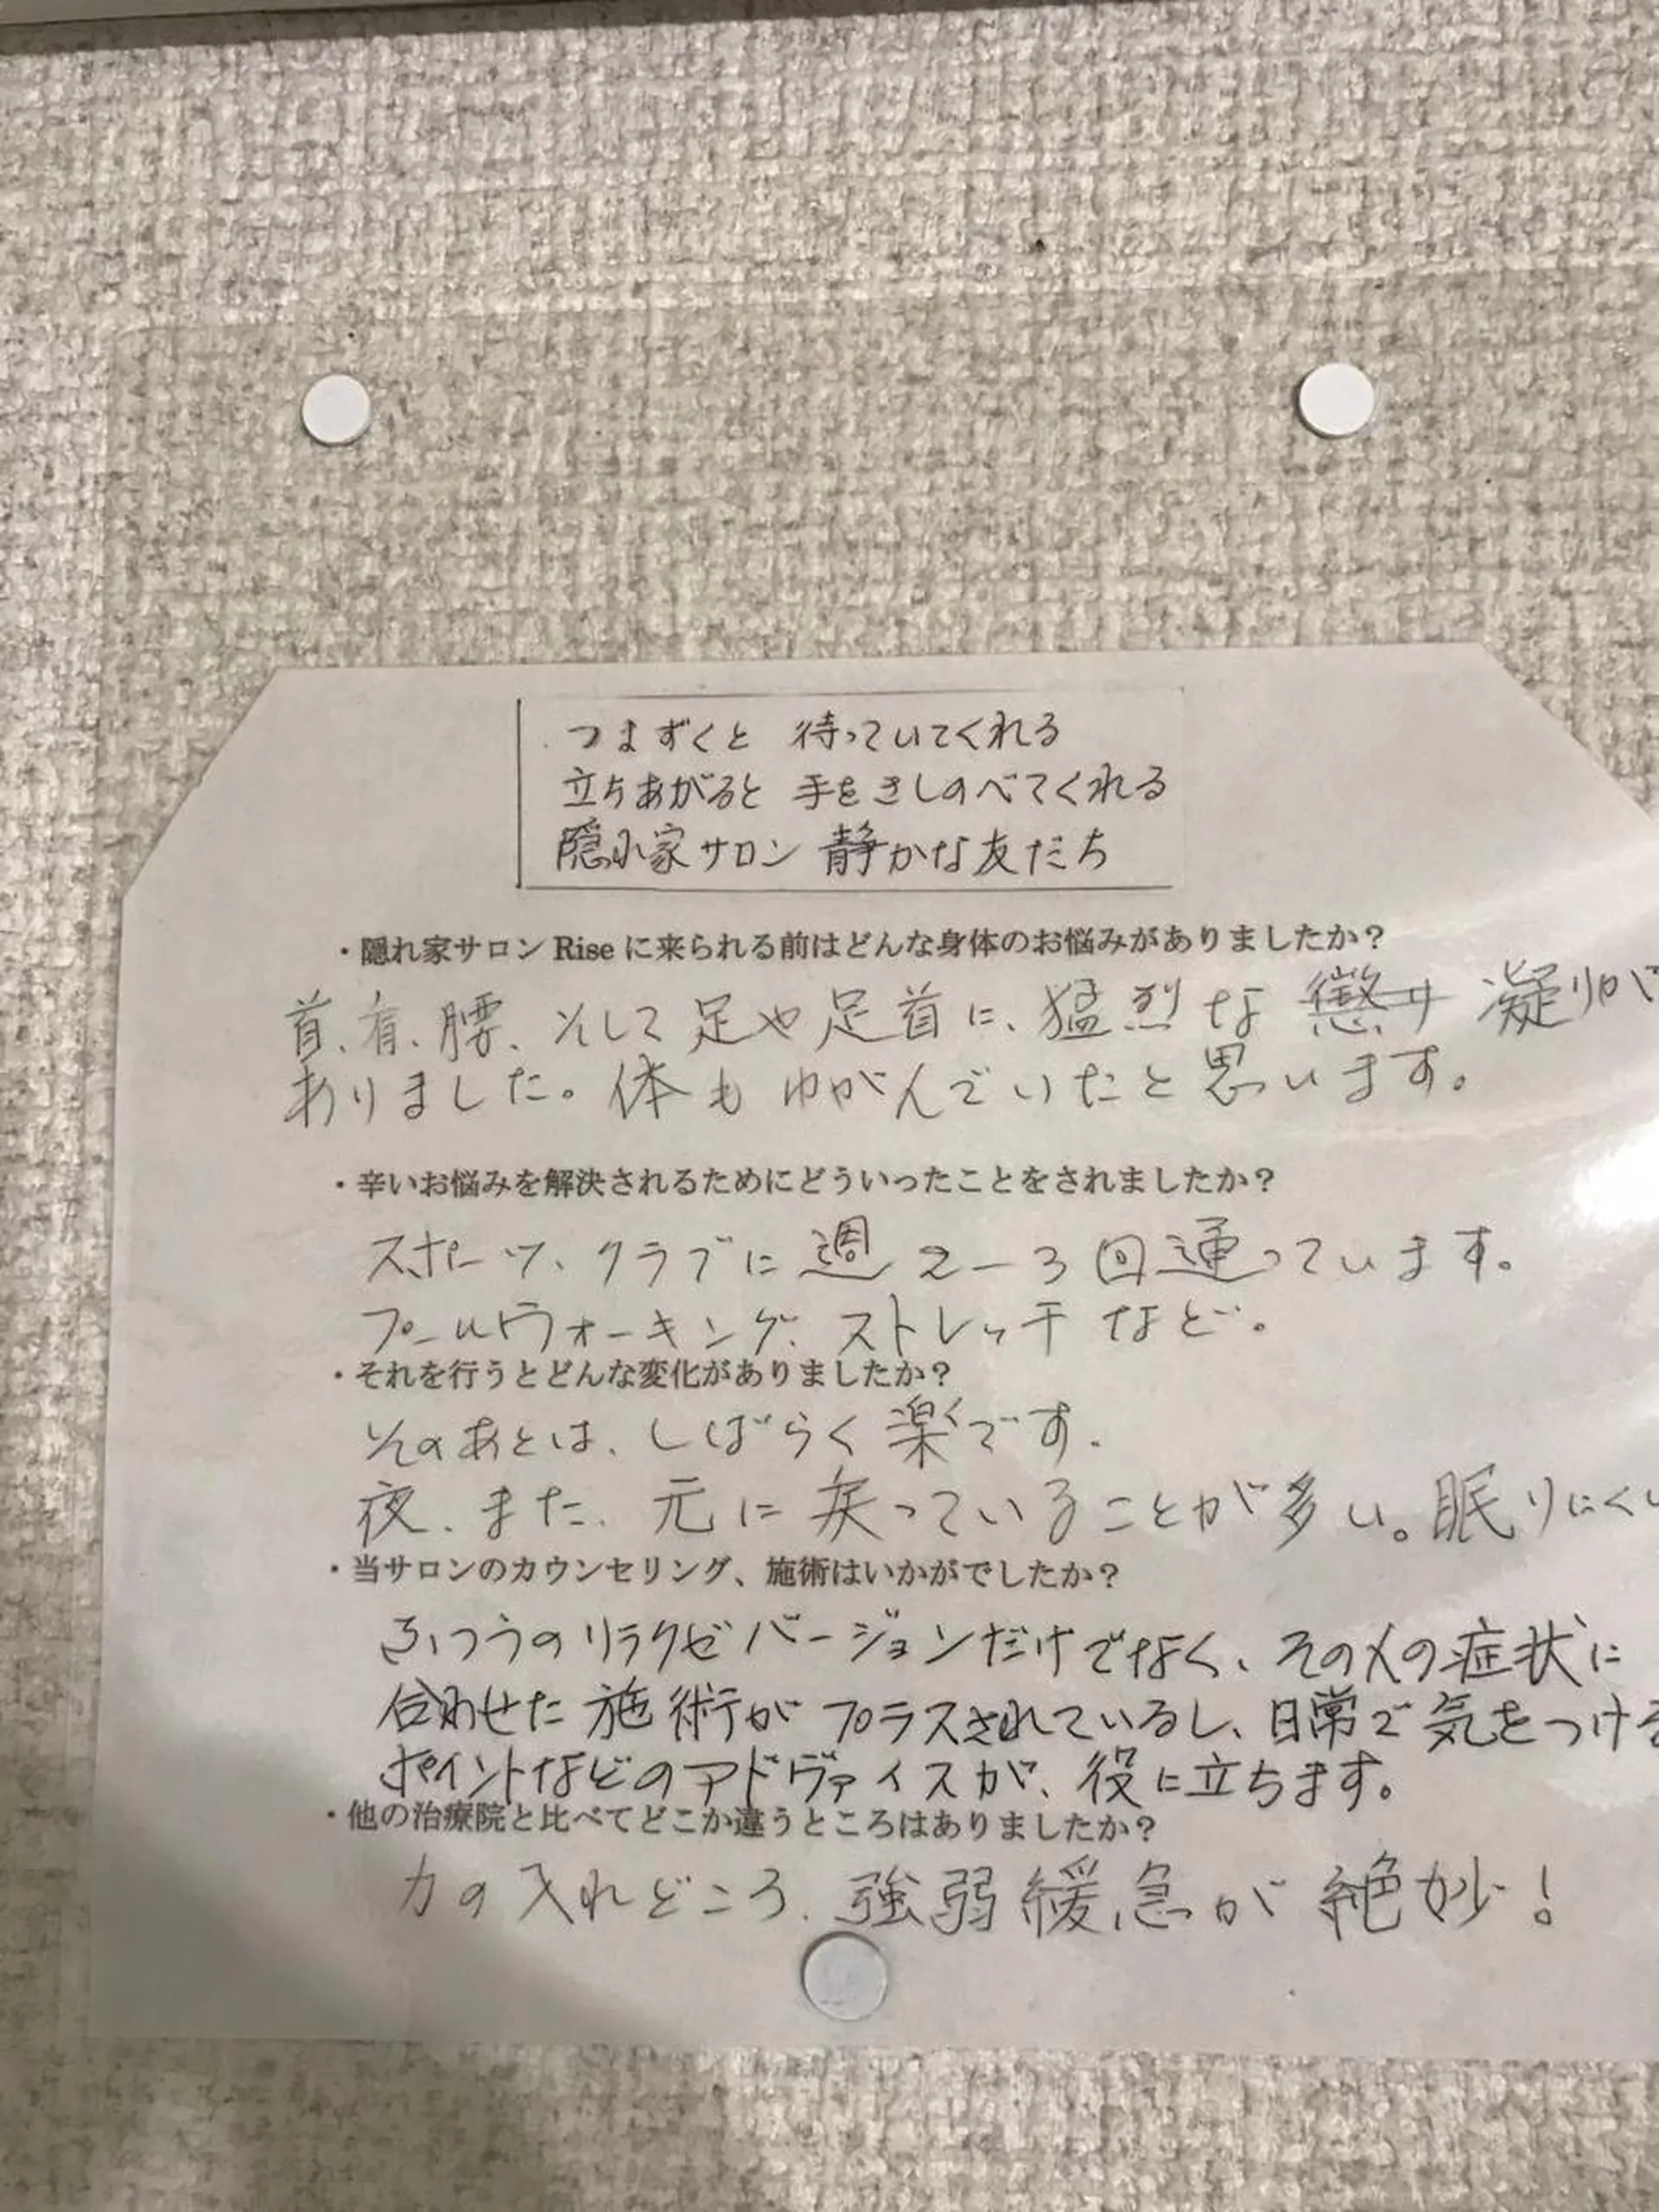 つまずくと 待っていてくれる
立ちあがると 手をさしのべてくれる
隠れ家サロン 静かな友だち
・隠れ家サロン Rise に来られる前はどんな身体のお悩みがありましたか？
首、肩、腰、そして足や足首に、猛烈な 凝りが
ありました。体も ゆがんでいたと思います。
・辛いお悩みを解決されるためにどういったことをされましたか？
スポーツ、クラブに週 2−3 回通っています。
プールウォーキング、ストレッチ など。
・それを行うとどんな変化がありましたか？
そのあとは、しばらく楽です。
夜、また、元に戻っていることが多い。眠りにくい
・当サロンのカウンセリング、施術はいかがでしたか？
ふつうのリラクゼバージョンだけでなく、その人の症状に
合わせた施術がプラスされているし、日常で気をつける
ポイントなどのアドヴァイスが、役に立ちます。
・他の治療院と比べてどこか違うところはありましたか？
力の入れどころ、強弱緩急が絶妙！